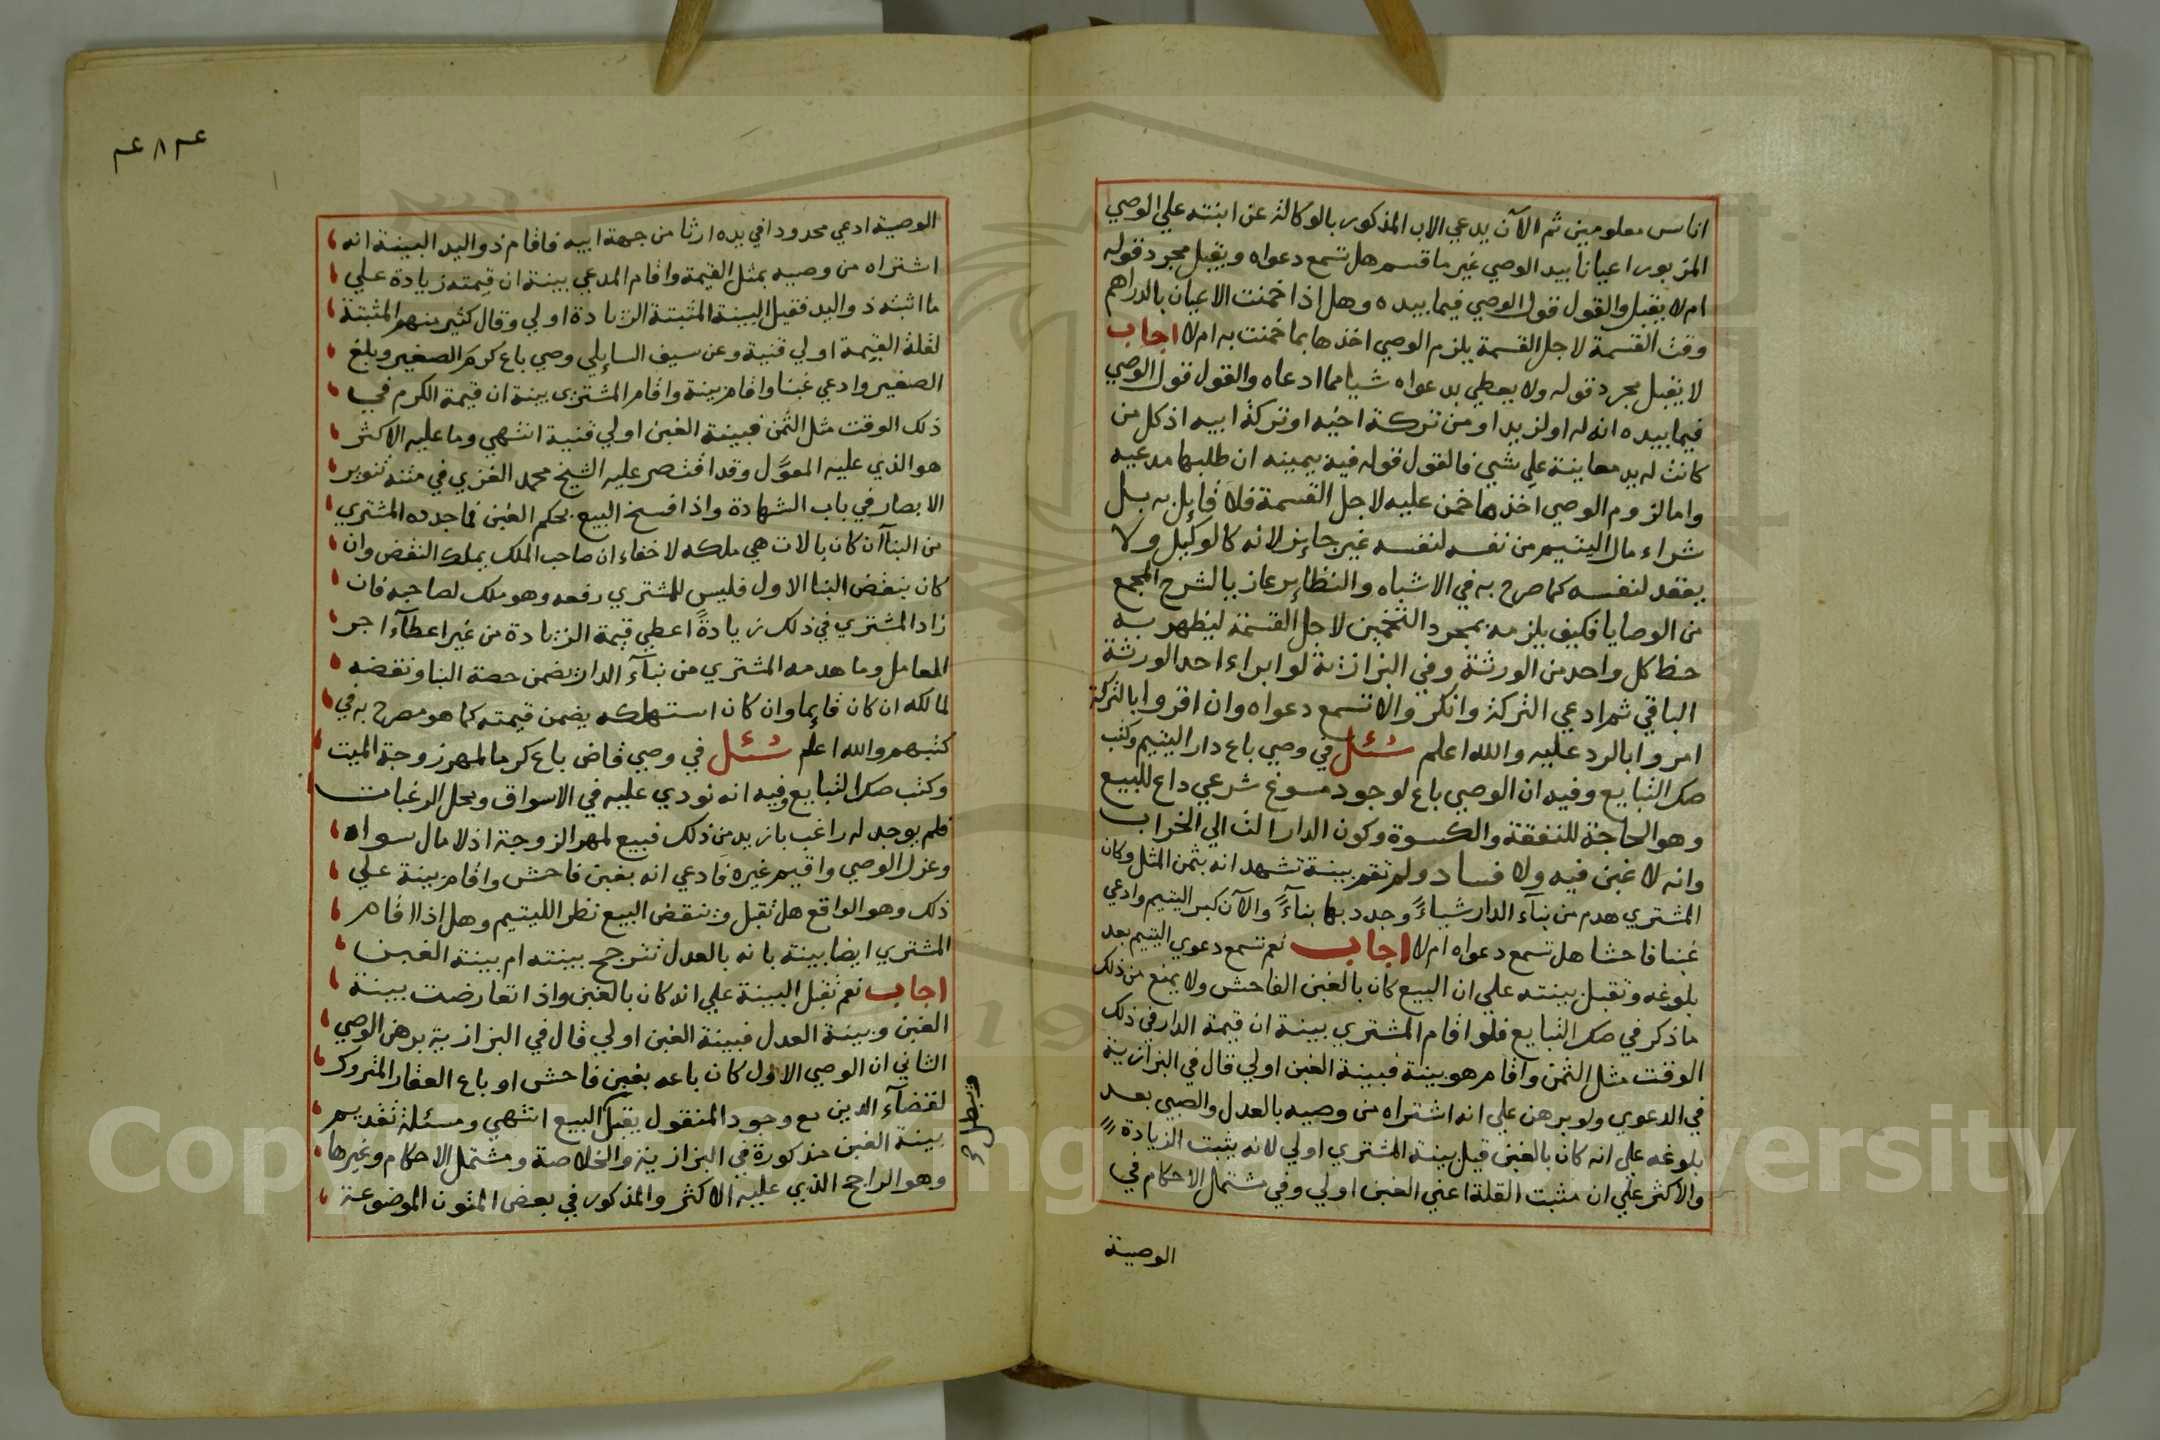 اناس معلومين ثم الآن يدعي الاب المذكور بالوكالة عن ابنته علي الوصي
المزبور اعيانا بيد الوصي غير ما قسم هل تسمع دعواه ويقبل مجرد قوله
ام لا يقبل والقول قول الوصي فيما بيده وهل اذا خمنت الاعيان بالدراهم
وقت القسمة لاجل القسمة يلزم الوصي اخذها بما خمنت به ام لا اجاب
لا يقبل مجرد قوله ولا يعطي بدعواه شيا مما ادعاه والقول قول الوصي
فيما بيده انه له او لزيد او من تركة اخيه او تركة ابيه اذ كل من
كانت له يد معاينة علي شيئ فالقول قوله فيه بيمينه ان طلبها مدعيه
واما لزوم الوصي اخذ ما خمن عليه لاجل القسمة فلا قايل به بل
شراء مال اليتيم من نفسه لنفسه غير جايز لانه كالوكيل ولا
يعقد لنفسه كما صرح به في الاشباه والنظاير عازيا لشرح المجمع
من الوصايا فكيف يلزمه بمجرد التخمين لاجل القسمة ليظهر به
حظ كل واحد من الورثة وفي البزازية لو ابراء احد الورثة
الباقي ثم ادعي التركة وانكروا لا تسمع دعواه وان اقروا بالتركة
امروا بالرد عليه والله اعلم سئل في وصي باع دار اليتيم وكتب
صك التبايع وفيه ان الوصي باع لوجود مسوغ شرعي داع للبيع
وهو الحاجة للنفقة والكسوة وكون الدار آلت الي الخراب
وانه لا غبن فيه ولا فساد ولم تقم بينة تشهد انه بثمن المثل وكان
المشتري هدم من بنآء الدار شياءً وجدد بها بنآءً والآن كبر اليتيم وادعي
غبنا فاحشا هل تسمع دعواه ام لا اجاب نعم تسمع دعوي اليتيم بعد
بلوغه وتقبل بينته علي ان البيع كان بالغبن الفاحش ولا يمنع من ذلك
ما ذكر في صك التبايع فلو اقام المشتري بينة ان قيمة الدار في ذلك
الوقت مثل الثمن واقام هو بينة فبينة الغبن اولي قال في البزازية
في الدعوي ولو برهن علي انه اشتراه من وصيه بالعدل والصبي بعد
بلوغه علي انه كان بالغبن قيل بينة المشتري اولي لانه يثبت الزيادة
والاكثر علي ان مثبت القلة اعني الغبن اولي وفي مشتمل الاحكام في
الوصية
عـ٨ـعـ
الوصية ادعي محدودا في يده ارثا من جهة ابيه فاقام ذو اليد البينة انه
اشتراه من وصيه بمثل القيمة واقام المدعي بينة ان قيمته زيادة علي
ما اثبته ذو اليد فقيل البينة المثبتة الزيادة اولي وقال كثير منهم المثبتة
لقلة القيمة اولي قنية وعن سيف السايلي وصي باع كرم الصغير وبلغ
الصغير وادعي غبنا واقام بينة واقام المشتري بينة ان قيمة الكرم في
ذلك الوقت مثل الثمن فبينة الغبن اولي قنية انتهي وما عليه الاكثر
هو الذي عليه المعوَّل وقد اقتصر عليه الشيخ محمد الغزي في متنه تنوير
الابصار في باب الشهادة واذا فسخ البيع بحكم الغبن فما جدده المشتري
من البنآ ان كان بالات هي ملكه لا خفاء ان صاحب الملك يملك النقض وان
كان بنقض البنا الاول فليس للمشتري رفعه وهو ملك لصاحبه فان
زاد المشتري في ذلك زيادةً اعطي قيمة الزيادة من غير اعطآء اجر
المعامل وما هدمه المشتري من بنآء الدار يضمن حصة البنا ونقضه
لمالكه ان كان قايما وان كان استهلكه يضمن قيمته كما هو مصرح به في
كتبهم والله اعلم سئل في وصي قاض باع كرما لمهر زوجة الميت
وكتب صك التبايع وفيه انه نودي عليه في الاسواق ومحل الرغبات
فلم يوجد له راغب بازيد من ذلك فبيع لمهر الزوجة اذ لا مال سواه
وعزل الوصي واقيم غيره فادعي انه بغبن فاحش واقام بينة علي
ذلك وهو الواقع هل تقبل وينقض البيع نظرا لليتيم وهل اذا اقام
المشتري ايضا بينة بانه بالعدل تترجح بينته ام بينة الغبن
اجاب نعم تقبل البينة علي انه كان بالغبن واذا تعارضت بينة
الغبن وبينة العدل فبينة الغبن اولي قال في البزازية برهن الوصي
الثاني ان الوصي الاول كان باعه بغبن فاحش او باع العقار المتروك
لقضآء الدين مع وجود المنقول يقبل البيع انتهي ومسئلة تقديم
ويبطل صح
بينة الغبن مذكورة في البزازية والخلاصة ومشتمل الاحكام وغيرها
وهو الراجح الذي عليه الاكثر والمذكور في بعض المتون الموضوعة
Copyright © King Saud University